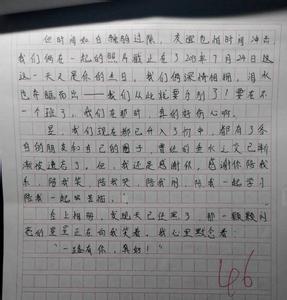 但时间如白驹般过隙，友谊也随时间冲击
我们俩在一起的照片截止在了2015年7月24日这
这一天又是你的生日，我们俩深情相拥，泪水
也奔驰而出——我们从此就要分别了！要在不
一个班了，我们在那时，真的好伤心啊。
是，我们现在都已升入了初中，都有了各
自的朋友和自己的圈子，曾经的友谊已
渐被遗忘了。但，我还是感谢你，感谢你陪我
哭，陪我笑，陪我哭，陪我闹，陪我一起学习
陪我一起
合上相册，发现天已经黑了，那一颗颗闪
亮的星星正在向我笑着，我心里默念着：
“一路有你，真好！”
46